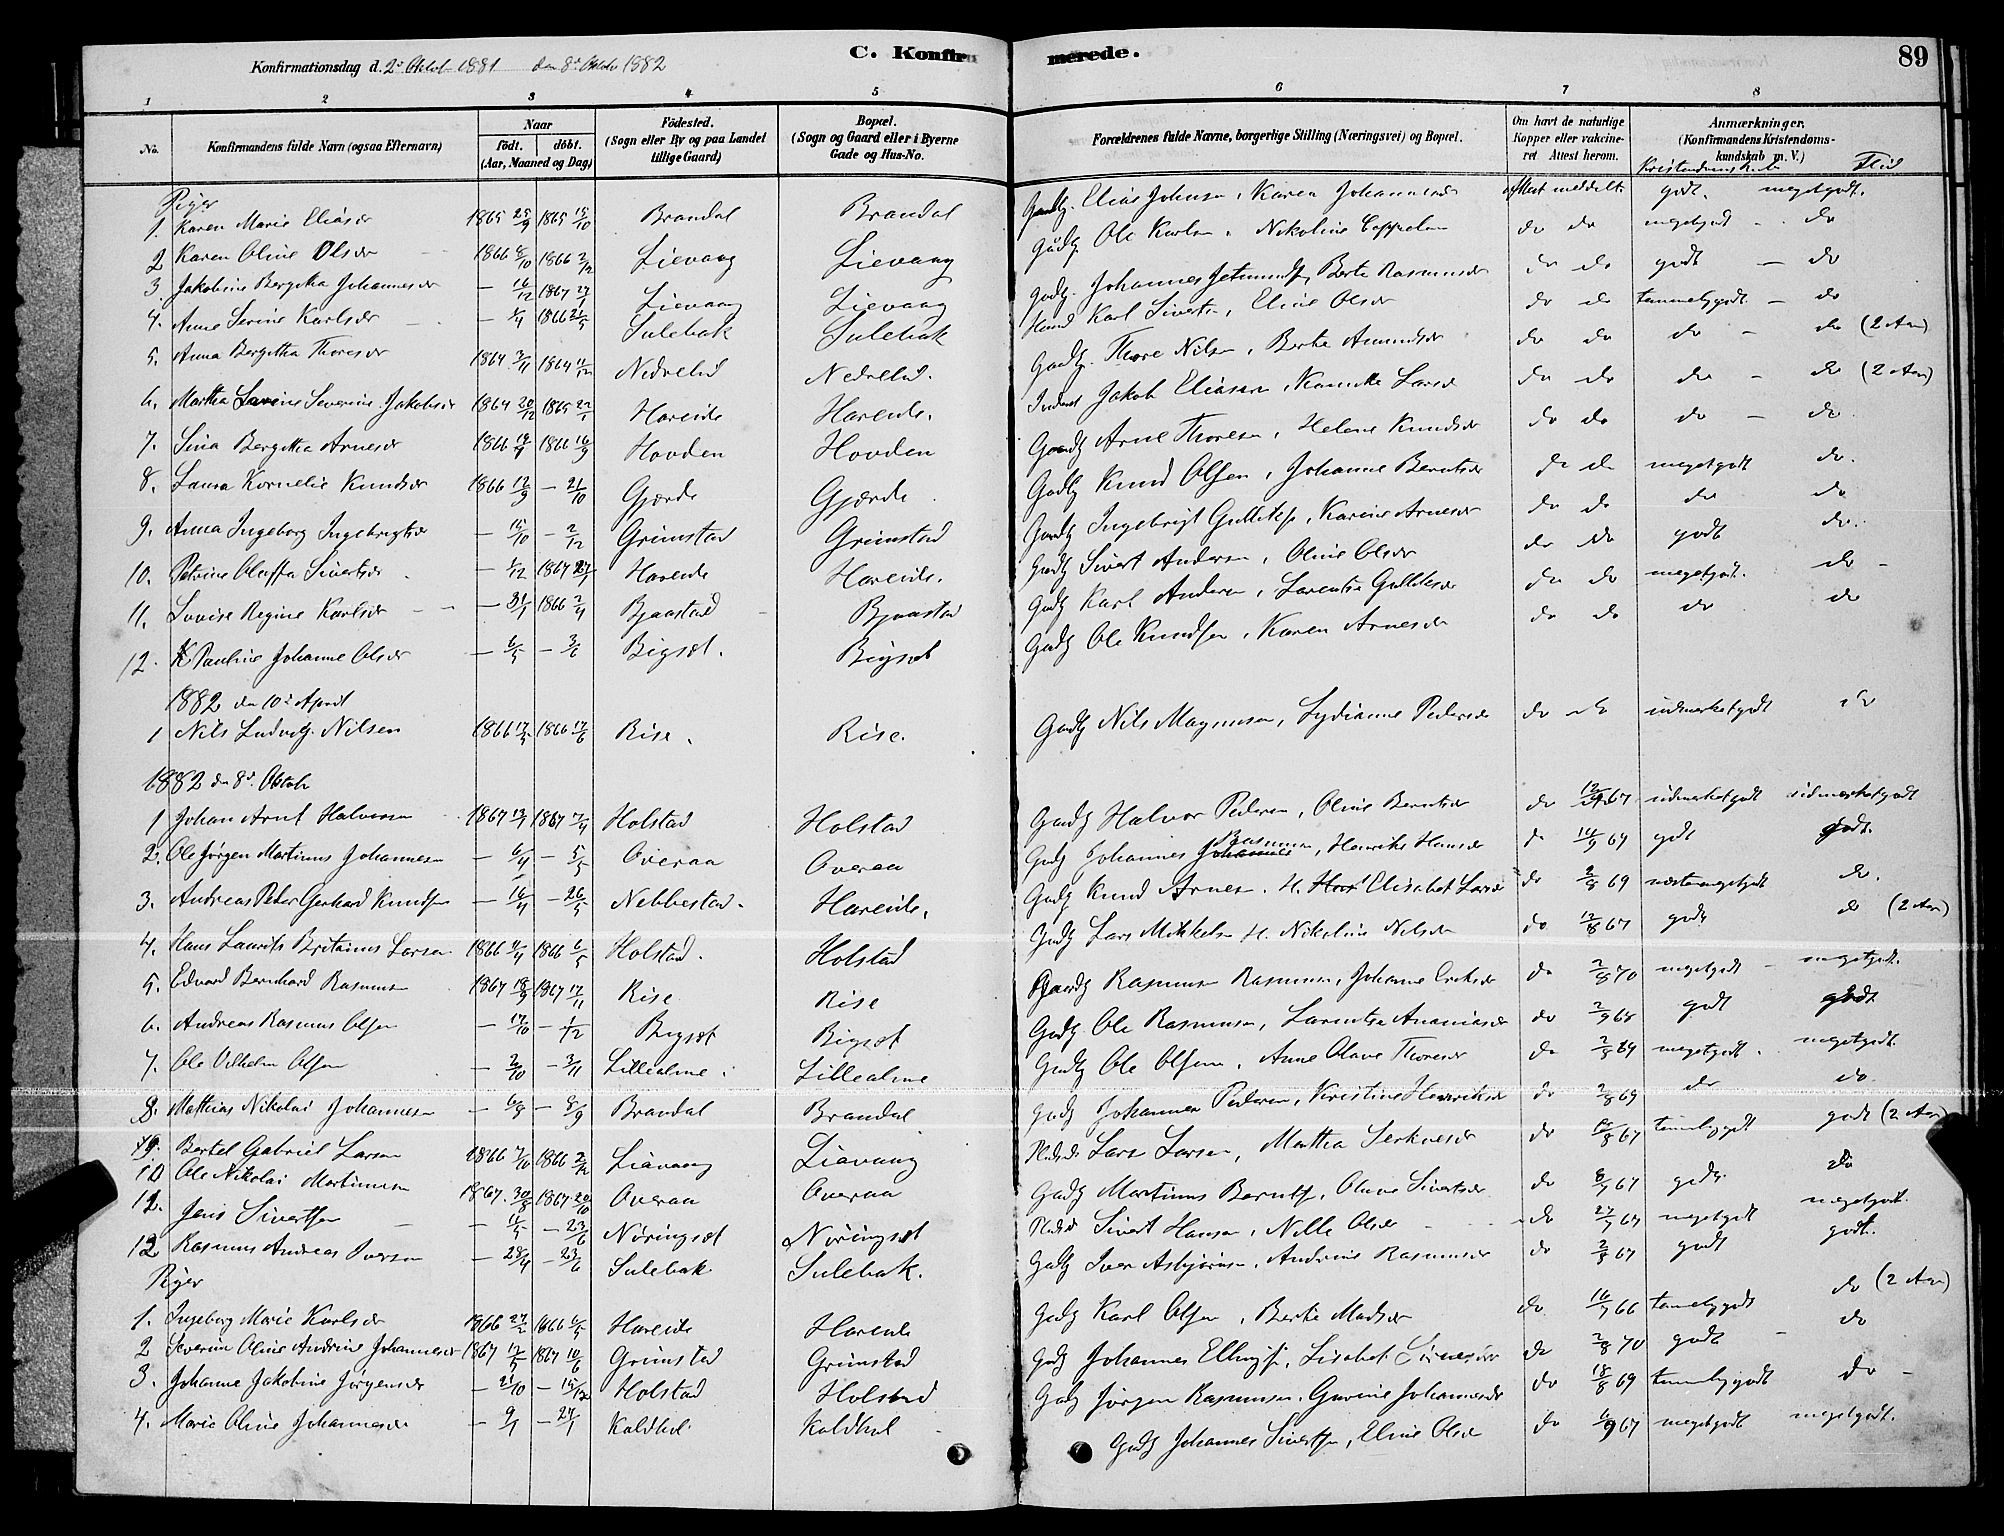 C. Konfirmerede.
89
Konfirmationsdag d. 2den Oktob 1881 den 8de Oktob 1882
1 2 3 4 5 6 7 8
No. Konfirmandens fulde Navn (ogsaa Efternavn) Naar født. døbt. (Aar, Maaned og Dag) Fødested. (Sogn eller By og paa Landet tillige Gaard) Bopæl. (Sogn og Gaard eller i Byerne Gade og Hus-No. Forældrenes fulde Navne, borgerlige Stilling (Næringsvei) og Bopæl. Om havt de naturlige Kopper eller vakcineret Attest herom. Anmærkninger. (Konfirmandens Kristendomskundskab m. V.) Flid
Piger
1. Karen Marie Eliasdr 1865 25/9 1865 15/10 Brandal Brandal Gaardbr. Elias Johnsen, Karen Johannesdr Attest meddelt godt. megetgodt.
2 Karen Oline Olsdr 1866 6/10 1866 2/12 Lievaag Lievaag Gaardbr Ole Karlsen, Nikoline do do megetgodt - do
3 Jakobine Bergitha Johannesdr - 16/12 1867 27/1 Lievaag Lievaag Gadbr. Johannes Jetmundss, Berte Rasmusdr do do godt - do
4. Anne Serine Karlsdr - 1/4 1866 21/5 Sulebak Sulebak Karl Sivertsen, Eline Olsdr do do temmeliggodt - do
5. Anna Bergitha Thoresdr 1864 3/11 1864 11/12 Nedrelid Nedrelid. Gaardbr. Thore Nilsen, Berte Amundsdr do do do - do (2 Aar)
6. Martha Severine Jakobsdr 1864 20/12 1865 22/1 Hareide Hareide. Inderst Jakob Eliassen, Larsdr do do do - do (2 Aar)
7. Sina Bergitha Arnesdr 1866 1866 16/9 Hovden Hovden Gaardbr Arne Thoresen, Helene Knudsdr do do do - do
8. Laura Kornelie Knudsdr 1866 12/9 - 21/10 Gjærde Gjærde Gadbr Knud Olsen, Johanne Berntsdr do do megetgodt do.
9. Anna Ingeborg Ingebrigtsdr - 15/10 - 2/12 Grimstad Grimstad Gaardbr Ingebrigt Gullikss, Karine Arnesdr do do do do
10. Petrine Oluffa Sivertsdr - 1/12 1867 27/1 Hareide Hareide. Gaardbr Sivert Andersen, Oline Olsdr do do godt do.
11. Lovise Regine Karlsdr - 31/1 1866 2/4 Bjaastad Bjaastad Gadbr Karl Andersen, Larentse Gulliksdr do do megetgodt. do -
12. Pauline Johanne Olsdr - 6/5 - 3/6 Bigset. Bigset Gadbr Ole Knudsen, Karen Arnesdr do do do do
1882 den 10de April
1 Nils Ludvig Nilsen 1866 17/5 1866 17/6 Rise. Rise. Gadbr Nils Magnussen, Lydianne Pedersdr do do udmerketgodt do
1882 den 8de Oktob
1 Johan Arnt Halvorsen 1867 13/1 1867 7/4 Holstad Holstad Gaardbr Halvor Pedersen, Oline Berntsdr do 67 udmerketgodt udmerketgodt
2. Ole Jørgen Martinus Johannesen - 6/4 - 5/5 Overaa Overaa Gadbr Johannes Rasmussen, Henrikke Hansdr do 16/9 69 godt godt.
3. Andreas Peter Gerhard Knudsen - 16/4 - 26/5 Nebbestad. Hareide. Gadbr Knud Arnesen. H. Elisabet Larsdr do 2/8 69 næstenmegetgodt do.
4. Hans Laurits Britainus Larsen 1866 4/4 1866 6/5 Holstad. Holstad Gadbr Lars Mikkelsen H. Nikoline Nilsdr do 12/8 67 godt do (2 Aar)
5. Edvard Bernhard Rasmussen 1867 18/9 1867 17/11 Rise Rise Gaardbr Rasmus Rasmussen, Johanne Eriksdr do 2/8 70 megetgodt - megetgodt.
6. Andreas Rasmus Olsen - 17/10 - 1/12 Bigset Bigset Gadbr Ole Rasmussen, Larentse Ananiasdr do 2/9 68 godt godt
7. Ole Vilhelm Olsen - 2/10 - 3/11 Lillealme Lillealme Gadbr Ole Olsen, Anne Olave Thoresdr do 2/8 69 megetgodt. megetgodt.
8. Mathias Nikolai Johannesen - 6/8 - 8/9 Brandal Brandal Gadbr Johannes Pedersen, Kristine Henriksdr do 2/8 69 do do.
9. Bertel Gabriel Larsen 1866 7/10 1866 2/12 Liavaag Liavaag Lars Larsen, Martha do 12/8 67 temmeliggodt godt (2 Aar)
10 Ole Nikolai Martinussen 1867. 30/8 1867 20/10 Overaa Overaa Gadbr Martinus Berntss, Olave Sivertsdr do 8/7 67 godt. do
12. Jens Sivertsen - - 23/6 Nøringset Nøringset Sivert Hansen, Nille Olsdr do megetgodt megetgodt.
12 Rasmus Andreas Iversen - 28/4 - 23/6 Sulebak Sulebak. Gadbr Iver Asbjørnsen, Andrine Rasmusdr do 2/8 67 godt godt.
Piger
1. Ingeborg Marie Karlsdr 1866 27/2 1866 6/5 Hareide Hareide Gadbr Karl Olsen, Berthe Madsdr do 16/7 66 temmeliggodt do (2 Aar)
2 Severine Oline Andrine Johannesdr 1867 12/5 1867 10/6 Grimstad Grimstad Gadbr Johannes Ellingss, Lisabet do 2/8 70 godt - do
3. Johanne Jakobine Jørgensdr - 21/10 - 15/12 Holstad Holstad Gadbr Jørgen Rasmussen, Gurine Johannesdr do 18/8 69 temmeliggodt do -
4. Marie Oline Johannesdr - 9/1 - 27/1 Koldhol Koldhol Gadbr Johannes Sivertsen, Eline Olsdr do 6/9 67 megetgodt megetgodt.